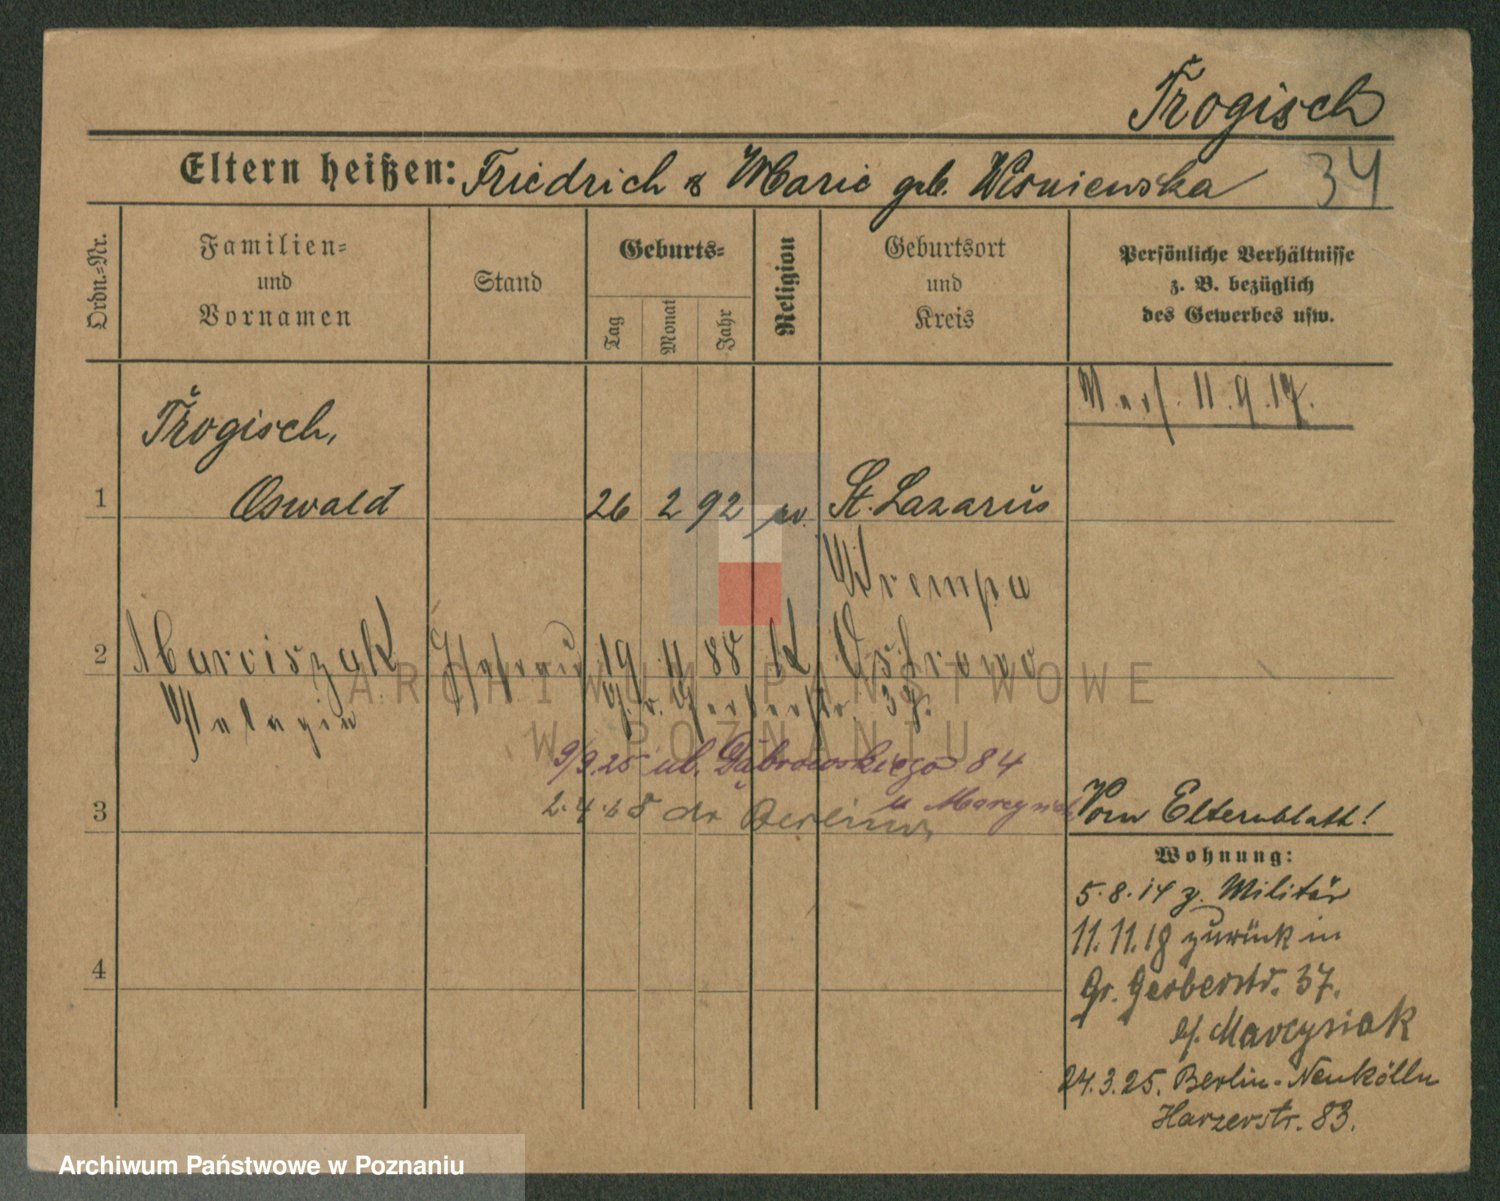 Trogisch
Eltern heißen: Friedrich & Marie geb. Wisniewska 34
Ordn.-Nr.
Familien-
und
Vornamen
Stand
Geburts-
Tag
Monat
Jahr
Religion
Geburtsort
und
Kreis
Persönliche Verhältnisse
z. B. bezüglich
des Gewerbes usw.
11.9.17.
Trogisch,
1 Oswald 26 2 92 ev. St. Lazarus
2 Marciszak 19 11 88 K Ostrowo
Pelagia Gr. Gerberstr. 37.
9/9.25 ul. Dąbrowskiego 84
u
3 do Berlina
Vom Elternblatt!
Wohnung:
5.8.14 z. Militär
11.11.18 zurück in
Gr. Gerberstr. 37.
b/. Marcysiak
24.3.25. Berlin-Neukölln
Harzerstr. 83.
4
ARCHIWUM PAŃSTWOWE
W POZNANIU
Archiwum Państwowe w Poznaniu